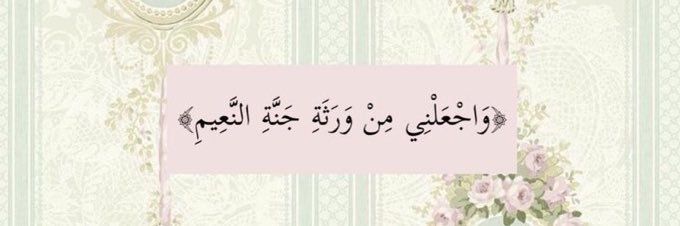 ﴿وَاجْعَلْنِي مِنْ وَرَثَةِ جَنَّةِ النَّعِيمِ﴾